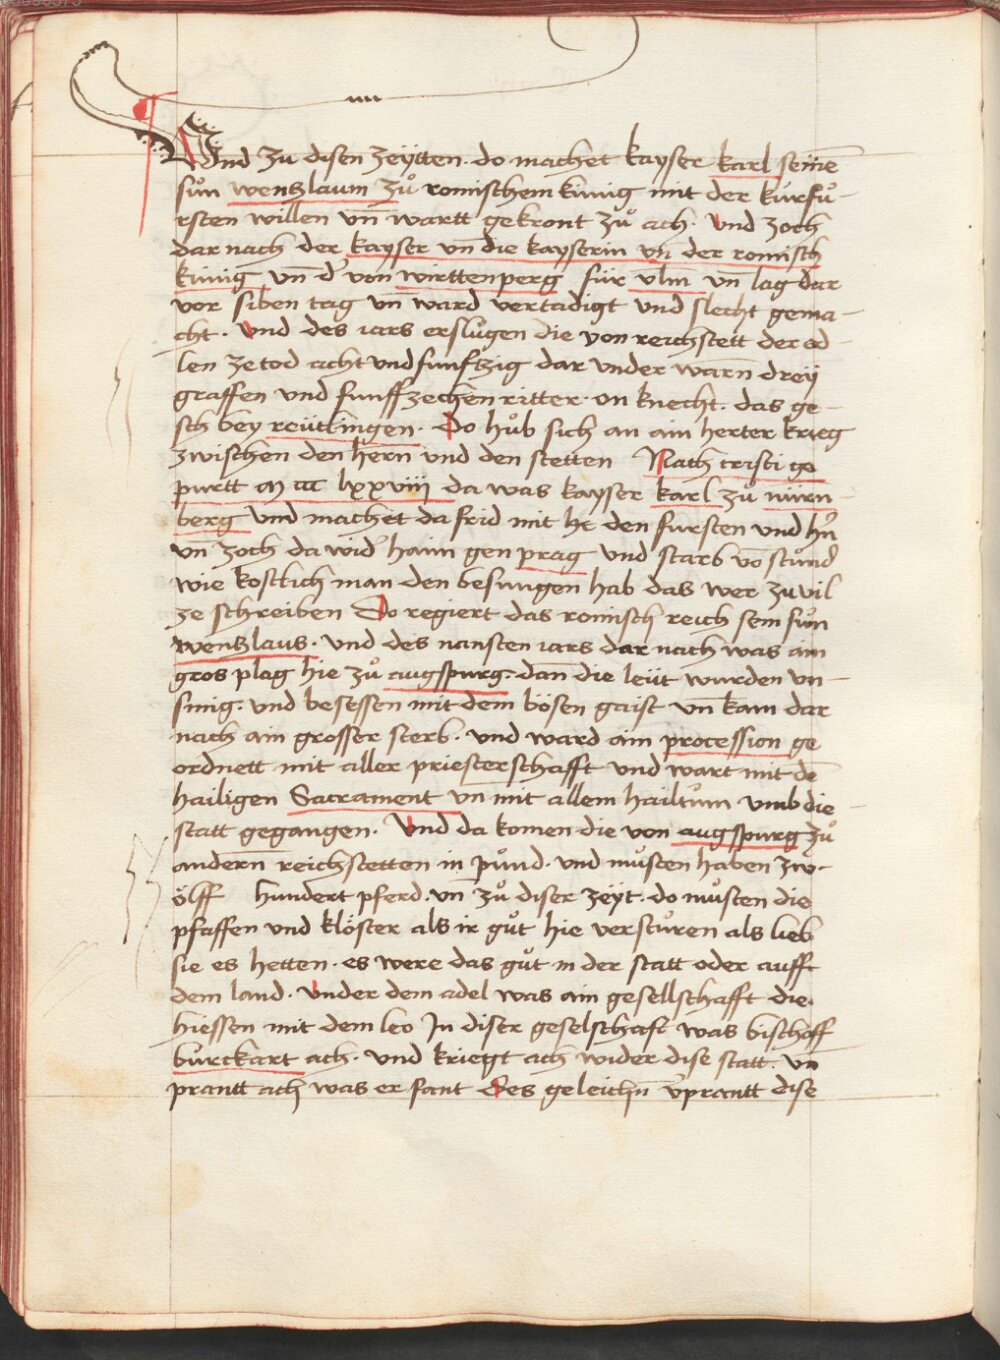 Vnd zu disen zeÿtten · do machet kayser karl seinē
sůn wentzlaum zů romischem kinig mit der kurfů-
rsten willen vn̄ wartt gekront zů ach · Vnd zoch
dar nach der kayser vn̄ die kayserin vn̄ der romisch
kinig vn̄ d' von wirttenperg für vlm vn̄ lag dar
vor siben tag vn̄ ward vertadigt vnd slecht gema-
cht · Vnd des iars erslůgen die von reichstett der ed-
len ze tod acht vnd funftzig dar vnder warn̄ dreÿ
graffen vnd funffzechen ritter · on knecht · das ge-
sch bey reütlingen · Do hůb sich an ain herter krieg
zwischen den hern̄ vnd den stetten Nach cristi ge
purtt m ccc lxxviii da was kayser karl zů nürn-
berg vnd machet da frid mit den fursten vnd hn̄
vn̄ zoch da wid' haim gen prag vnd starb vō stund
wie kostlich man den besungen hab das wer zu vil
ze schreiben Do regiert das romisch reich sein sůn
wentzlaus · vnd des nansten iars dar nach was ain
gros plag hie zů augspurg · dan̄ die leüt wurden vn-
sinig · vnd besessen mit dem bösen gaist vn̄ kam dar
nach ain grosser sterb · vnd ward ain procession ge
ordnett mit aller priesterschafft vnd wart mit dē
hailigen Sacrament vn̄ mit allem hailtům vmb die-
statt gegangen · Vnd da komen die von augspurg zů
andern̄ reichstetten in půnd · vnd můsten haben zw-
ölff hundert pferd · vn̄ zů diser zeÿt · do můsten die
pfaffen vnd klöster als ir gůt hie versturen als lieb
sie es hetten · es were das gůt in der statt oder auff
dem land · Vnder dem adel was ain gesellschafft die
hiessen mit dem leo In diser geselschaft was bischoff
burckart ach · vnd kriegt ach wider dise statt · vn̄
prantt ach was er fant Des geleichn̄ v'prantt dise